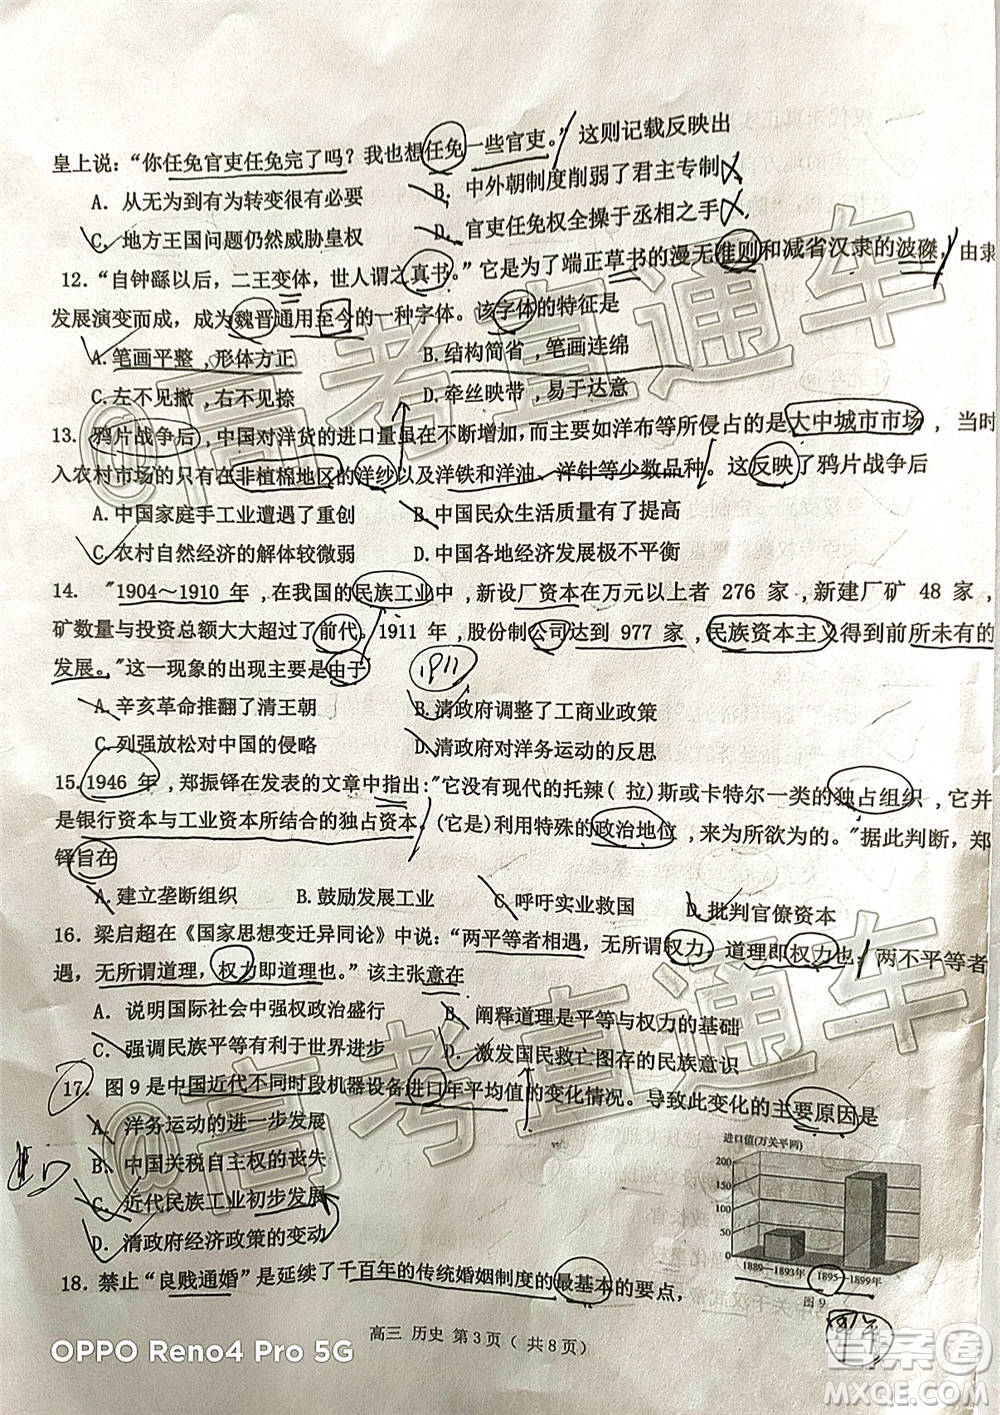 皇上说：“你任免官吏任免完了吗？我也想任免一些官吏。”这则记载反映出
A. 从无为到有为转变很有必要 B. 中外朝制度削弱了君主专制
C. 地方王国问题仍然威胁皇权 D. 官吏任免权全操于丞相之手
12. “自钟繇以后，二王变体，世人谓之真书。”它是为了端正草书的漫无准则和减省汉隶的波磔，由隶
发展演变而成，成为魏晋通用至今的一种字体。该字体的特征是
A. 笔画平整，形体方正 B. 结构简省，笔画连绵
C. 左不见撇，右不见捺 D. 牵丝映带，易于达意
13. 鸦片战争后，中国对洋货的进口量虽在不断增加，而主要如洋布等所侵占的是大中城市市场，当时
入农村市场的只有在非植棉地区的洋纱以及洋铁和洋油、洋针等少数品种。这反映了鸦片战争后
A.中国家庭手工业遭遇了重创 B.中国民众生活质量有了提高
C.农村自然经济的解体较微弱 D.中国各地经济发展极不平衡
14. "1904～1910 年，在我国的民族工业中，新设厂资本在万元以上者 276 家，新建厂矿 48 家，
矿数量与投资总额大大超过了前代。1911 年，股份制公司达到 977 家，民族资本主义得到前所未有的
发展。"这一现象的出现主要是由于
1911
A. 辛亥革命推翻了清王朝 B.清政府调整了工商业政策
C.列强放松对中国的侵略 D.清政府对洋务运动的反思
15. 1946 年，郑振铎在发表的文章中指出："它没有现代的托辣（拉）斯或卡特尔一类的独占组织，它并
是银行资本与工业资本所结合的独占资本。(它是)利用特殊的政治地位，来为所欲为的。"据此判断，郑
铎旨在
A.建立垄断组织 B.鼓励发展工业 C.呼吁实业救国 D.批判官僚资本
16. 梁启超在《国家思想变迁异同论》中说：“两平等者相遇，无所谓权力，道理即权力也；两不平等者
遇，无所谓道理，权力即道理也。”该主张意在
A. 说明国际社会中强权政治盛行 B. 阐释道理是平等与权力的基础
C. 强调民族平等有利于世界进步 D. 激发国民救亡图存的民族意识
17. 图 9 是中国近代不同时段机器设备进口年平均值的变化情况。导致此变化的主要原因是
A. 洋务运动的促进发展
B. 中国关税自主权的丧失
C. 近代民族工业初步发展
D. 清政府经济政策的变动
进口值(万关平两)
200
150
100
50
0
1889—1893年 1895—1899年
图 9
18. 禁止“良贱通婚”是延续了千百年的传统婚姻制度的最基本的要点，
高三 历史 第 3 页（ 共 8 页）
OPPO Reno4 Pro 5G
@高考直通车
@高考直通车
答案圈
MXQE.COM